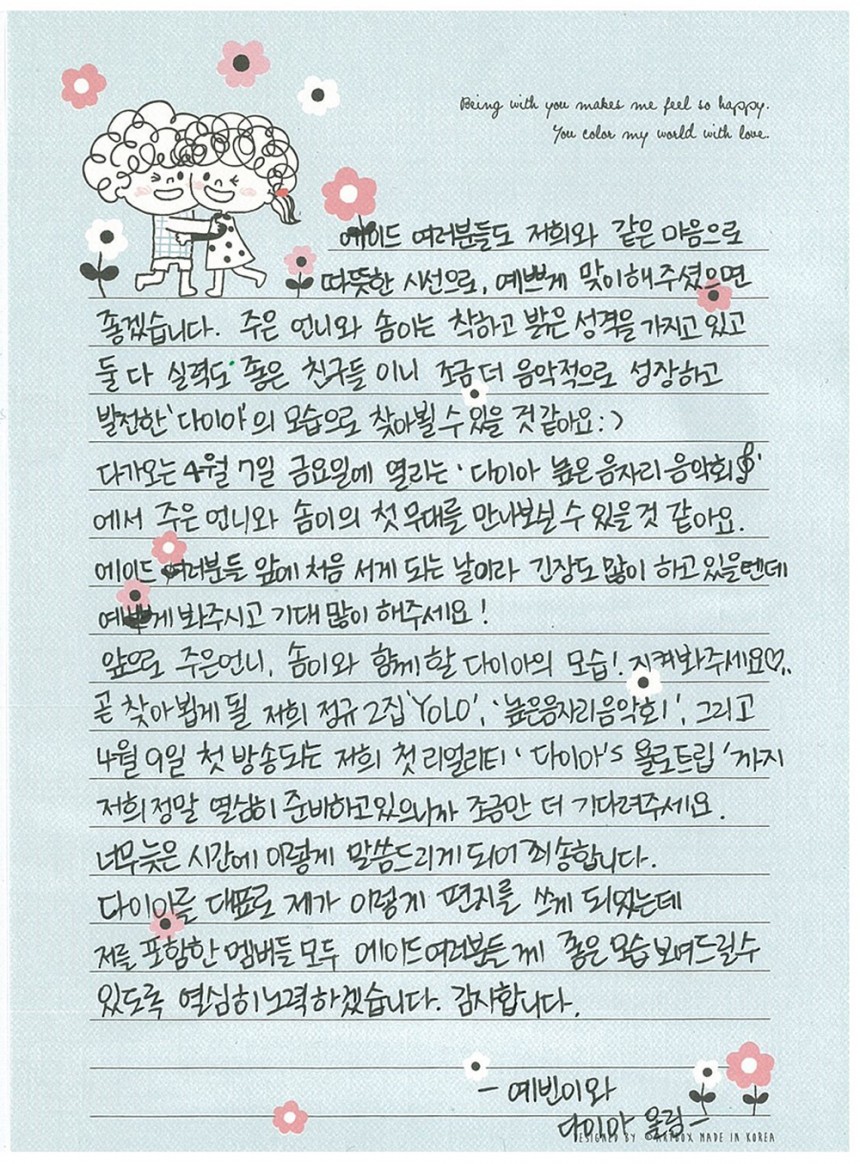 Being with you makes me feel so happy.
You color my world with love.
에이드 여러분들도 저희와 같은 마음으로
따뜻한 시선으로, 예쁘게 맞이해주셨으면
좋겠습니다. 주은 언니와 솜이는 착하고 밝은 성격을 가지고 있고
둘 다 실력도 좋은 친구들 이니 조금 더 음악적으로 성장하고
발전한 '다이아'의 모습으로 찾아뵐 수 있을 것 같아요:)
다가오는 4월 7일 금요일에 열리는 '다이아 높은 음자리 음악회'
에서 주은 언니와 솜이의 첫 무대를 만나보실 수 있을 것 같아요.
에이드 여러분들 앞에 처음 서게 되는 날이라 긴장도 많이 하고 있을텐데
예쁘게 봐주시고 기대 많이 해주세요!
앞으로 주은언니, 솜이와 함께 할 다이아의 모습! 지켜봐주세요♡..
곧 찾아뵙게 될 저희 정규 2집 'YOLO', '높은음자리음악회', 그리고
4월 9일 첫 방송되는 저희 첫 리얼리티 '다이아's 욜로트립'까지
저희 정말 열심히 준비하고 있으니까 조금만 더 기다려주세요.
너무 늦은 시간에 이렇게 말씀드리게 되어 죄송합니다.
다이아를 대표로 제가 이렇게 편지를 쓰게 되었는데
저를 포함한 멤버들 모두 에이드여러분들께 좋은 모습 보여드릴 수
있도록 열심히 노력하겠습니다. 감사합니다.
- 예빈이와
다이아 올림 -
DESIGNED BY ©ARTBOX MADE IN KOREA